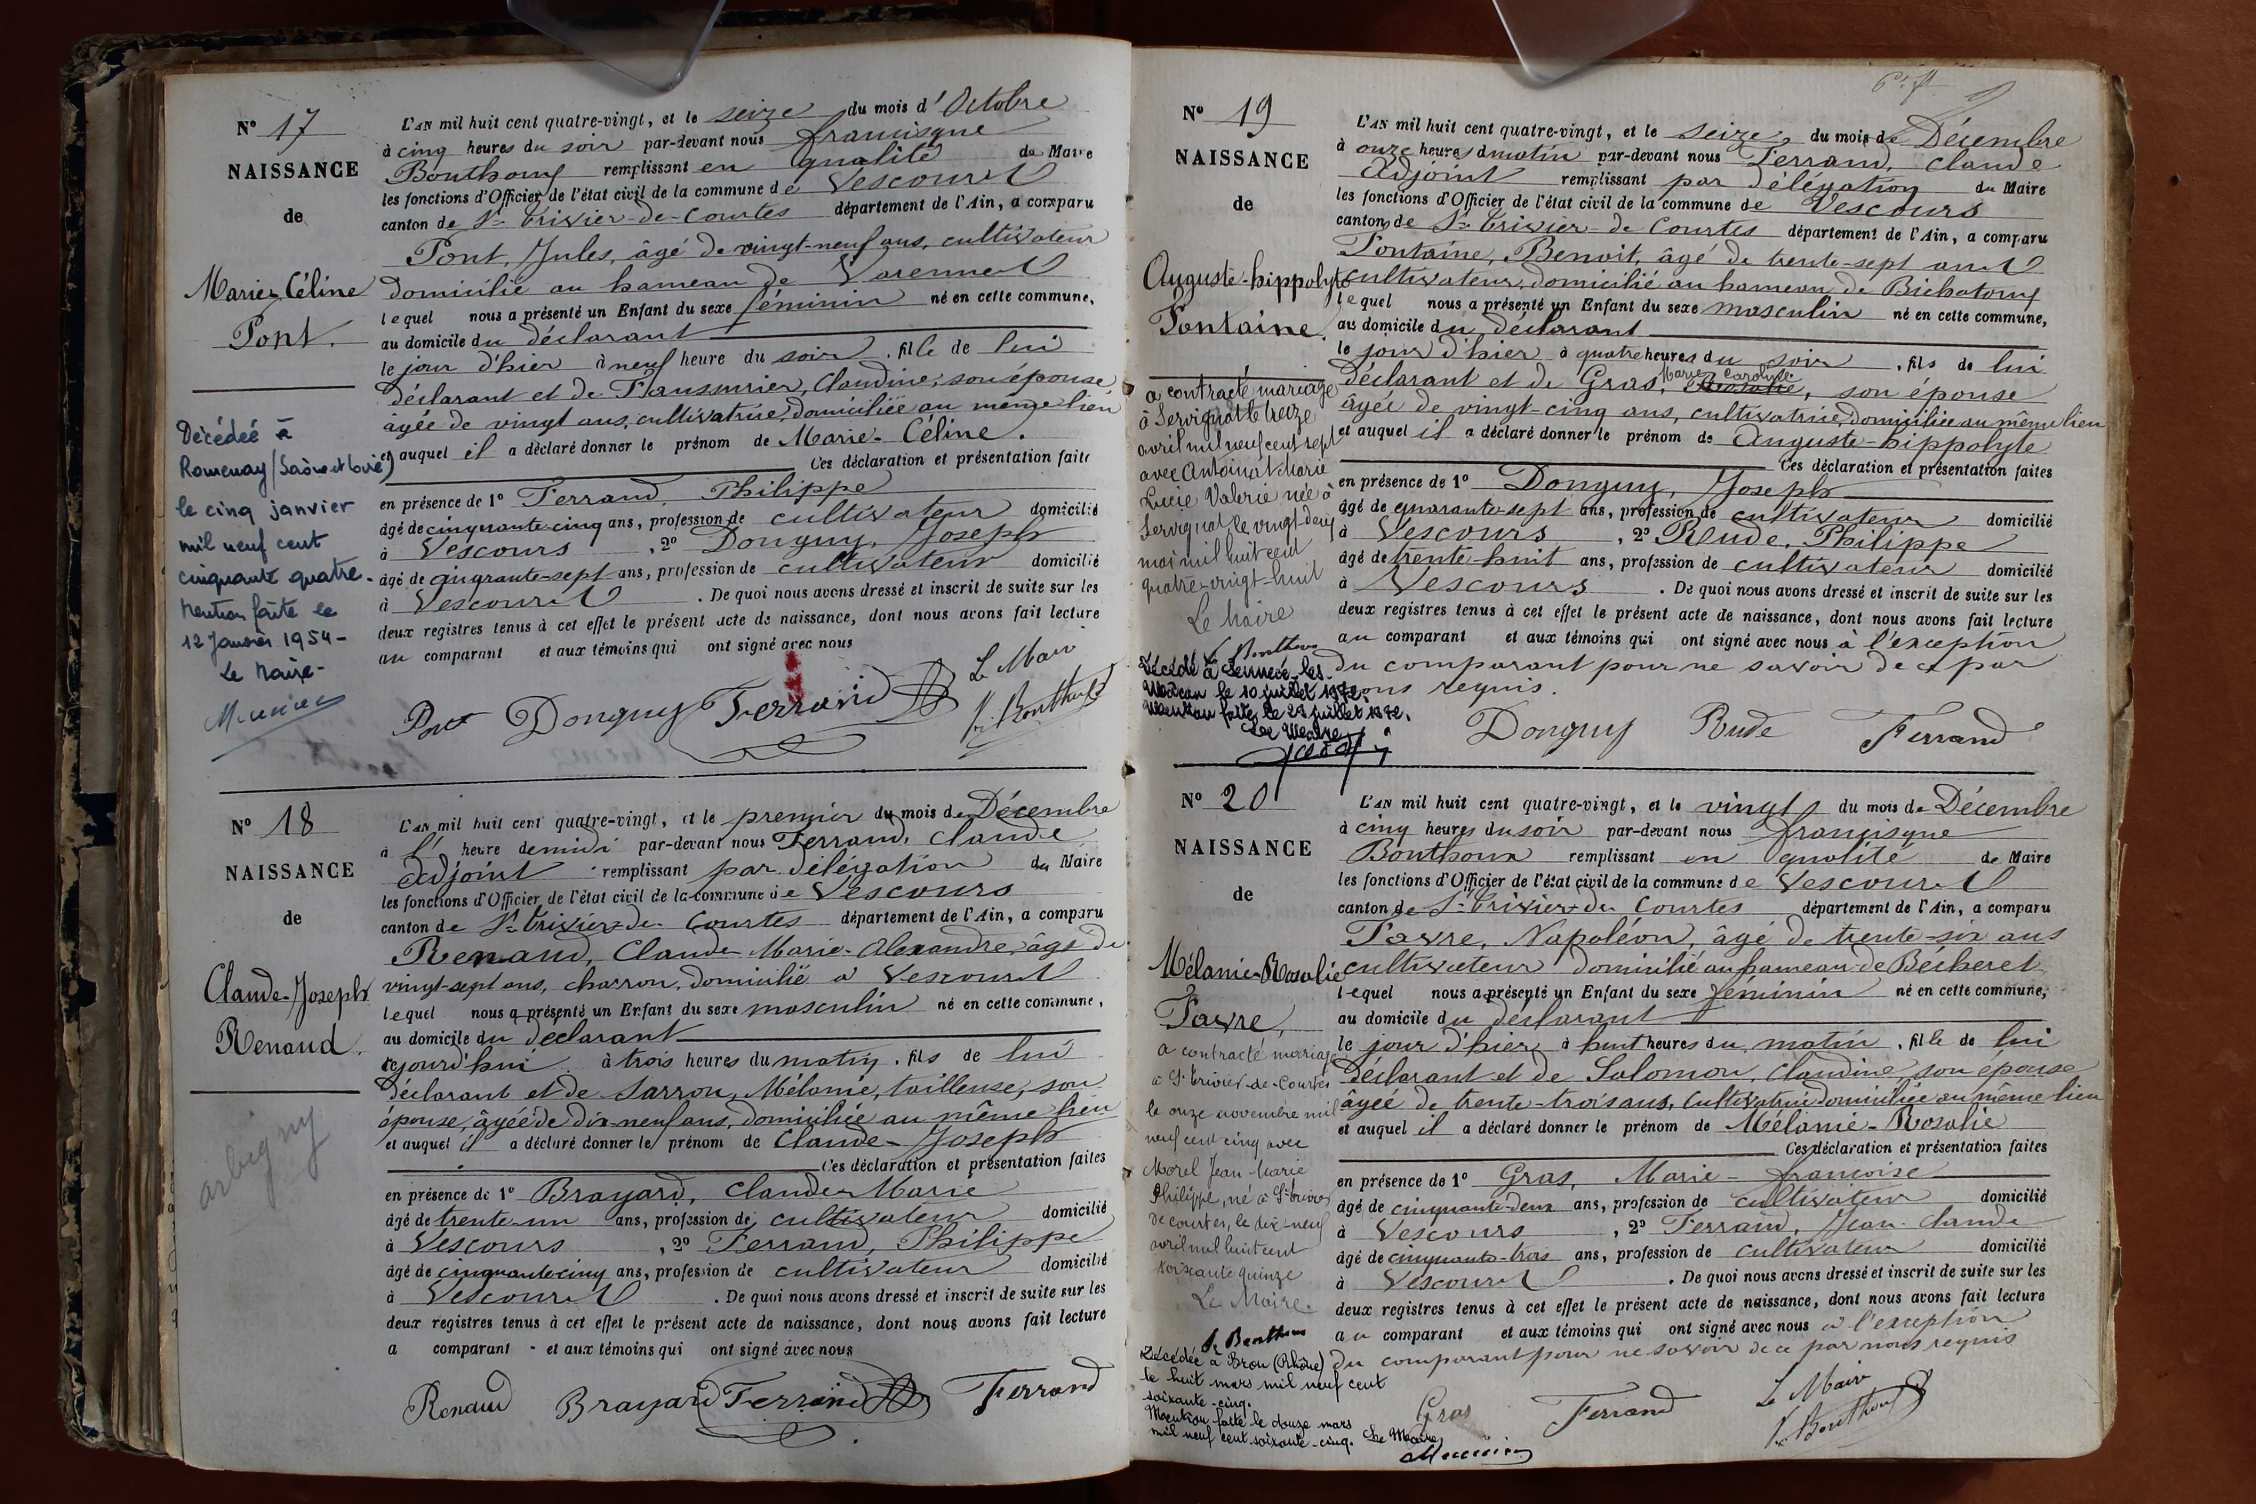 N° 17
NAISSANCE
de
Marie-Céline
Pont.
Décédée à
Romenay (Saône et Loire)
le cinq janvier
mil neuf cent
cinquante quatre.
Mention faite le
12 Janvier 1954 -
Le Maire -
L'AN mil huit cent quatre-vingt, et le seize du mois d'Octobre
à cinq heures du soir par-devant nous francisque
Bouthoux remplissant en qualité de Maire
les fonctions d'Officier de l'état civil de la commune de Vescours
canton de St Trivier-de-Courtes département de l'Ain, a comparu
Pont, Jules, âgé de vingt-neuf ans, cultivateur
domicilié au hameau de Varennes
lequel nous a présenté un Enfant du sexe féminin né en cette commune,
au domicile du déclarant
le jour d'hier à neuf heure du soir, fille de lui
déclarant et de Claudine, son épouse
âgée de vingt ans, cultivatrice, domiciliée au même lieu
et auquel il a déclaré donner le prénom de Marie-Céline.
Ces déclaration et présentation faite
en présence de 1° Ferrand, Philippe
âgé de cinquante-cinq ans, profession de cultivateur domicilié
à Vescours, 2° Donguy, Joseph
âgé de cinqrante-sept ans, profession de cultivateur domicilié
à Vescours. De quoi nous avons dressé et inscrit de suite sur les
deux registres tenus à cet effet le présent acte de naissance, dont nous avons fait lecture
au comparant et aux témoins qui ont signé avec nous
Le Maire
Pont Donguy Ferrand fr. Bouthoux
N° 18
NAISSANCE
de
Claude-Joseph
Renaud.
arbigny
L'AN mil huit cent quatre-vingt, et le premier du mois de Décembre
à l' heure de midi par-devant nous Ferrand, Claude
adjoint remplissant par délégation du Maire
les fonctions d'Officier de l'état civil de la commune de Vescours
canton de St Trivier-de-Courtes département de l'Ain, a comparu
Renaud, Claude-Marie-Alexandre, âgé de
vingt-sept ans, charron, domicilié à Vescours
lequel nous a présenté un Enfant du sexe masculin né en cette commune,
au domicile du déclarant
cejourd'hui à trois heures du matin, fils de lui
déclarant et de Sarron, Mélanie, tailleuse, son
épouse, âgée de dix-neuf ans, domiciliée au même lieu
et auquel il a déclaré donner le prénom de Claude-Joseph
Ces déclaration et présentation faites
en présence de 1° Brayard, Claude-Marie
âgé de trente-un ans, profession de cultivateur domicilié
à Vescours, 2° Ferrand, Philippe
âgé de cinquante-cinq ans, profession de cultivateur domicilié
à Vescours. De quoi nous avons dressé et inscrit de suite sur les
deux registres tenus à cet effet le présent acte de naissance, dont nous avons fait lecture
a comparant et aux témoins qui ont signé avec nous
Renaud Brayard Ferrand Ferrand
N° 19
NAISSANCE
de
Auguste-hippolyte
Fontaine.
a contracté mariage
à Servignat le treize
avril mil neuf cent sept
avec Antoinat Marie
Lucie Valerie née à
Servignat le vingt-deux
mai mil huit cent
quatre-vingt-huit
Le Maire
Bouthoux
Décédé à Sennecé-les-
Mâcon le 10 juillet 1972.
Mention faite le 28 juillet 1972.
Le Maire
L'AN mil huit cent quatre-vingt, et le seize du mois de Décembre
à onze heures du matin par-devant nous Ferrand, Claude
Adjoint remplissant par délégation du Maire
les fonctions d'Officier de l'état civil de la commune de Vescours
canton de St Trivier-de-Courtes département de l'Ain, a comparu
Fontaine, Benoit, âgé de trente-sept ans
cultivateur, domicilié au hameau de
lequel nous a présenté un Enfant du sexe masculin né en cette commune,
au domicile du déclarant
le jour d'hier à quatre heures du soir, fils de lui
Marie Caroline
déclarant et de Gras, son épouse
âgée de vingt-cinq ans, cultivatrice, domiciliée au même lieu
et auquel il a déclaré donner le prénom de Auguste-hippolyte
Ces déclaration et présentation faites
en présence de 1° Donguy, Joseph
âgé de quarante-sept ans, profession de cultivateur domicilié
à Vescours, 2° Rude, Philippe
âgé de trente-huit ans, profession de cultivateur domicilié
à Vescours. De quoi nous avons dressé et inscrit de suite sur les
deux registres tenus à cet effet le présent acte de naissance, dont nous avons fait lecture
au comparant et aux témoins qui ont signé avec nous à l'exception
du comparant pour ne savoir de ce par
nous requis.
Donguy Rude Ferrand
N° 20
NAISSANCE
de
Mélanie-Rosalie
Favre,
a contracté mariage
à St Trivier-de-Courtes
le onze novembre mil
neuf cent cinq avec
Morel Jean-Marie
Philippe, né à St Trivier
de Courtes, le dix-neuf
avril mil huit cent
soixante quinze
Le Maire.
fr. Bouthoux
Décédée à Bron (Rhône)
le huit mars mil neuf cent
soixante-cinq.
Mention faite le douze mars
mil neuf cent soixante-cinq. Le Maire
L'AN mil huit cent quatre-vingt, et le vingt du mois de Décembre
à cinq heures du soir par-devant nous francisque
Bouthoux remplissant en qualité de Maire
les fonctions d'Officier de l'état civil de la commune de Vescours
canton de St Trivier-de-Courtes département de l'Ain, a comparu
Favre, Napoléon, âgé de trente-six ans
cultivateur domicilié au hameau de Bécheret
lequel nous a présenté un Enfant du sexe féminin né en cette commune,
au domicile du déclarant
le jour d'hier à huit heures du matin, fille de lui
déclarant et de Salomon, Claudine, son épouse
âgée de trente-trois ans, cultivatrice domiciliée au même lieu
et auquel il a déclaré donner le prénom de Mélanie-Rosalie
Ces déclaration et présentation faites
en présence de 1° Gras, Marie-francoise
âgé de cinquante-deux ans, profession de cultivateur domicilié
à Vescours, 2° Ferrand, Jean-Claude
âgé de cinquante-trois ans, profession de cultivateur domicilié
à Vescours. De quoi nous avons dressé et inscrit de suite sur les
deux registres tenus à cet effet le présent acte de naissance, dont nous avons fait lecture
au comparant et aux témoins qui ont signé avec nous à l'exception
du comparant pour ne savoir de ce par nous requis
Le Maire
Gras Ferrand fr. Bouthoux